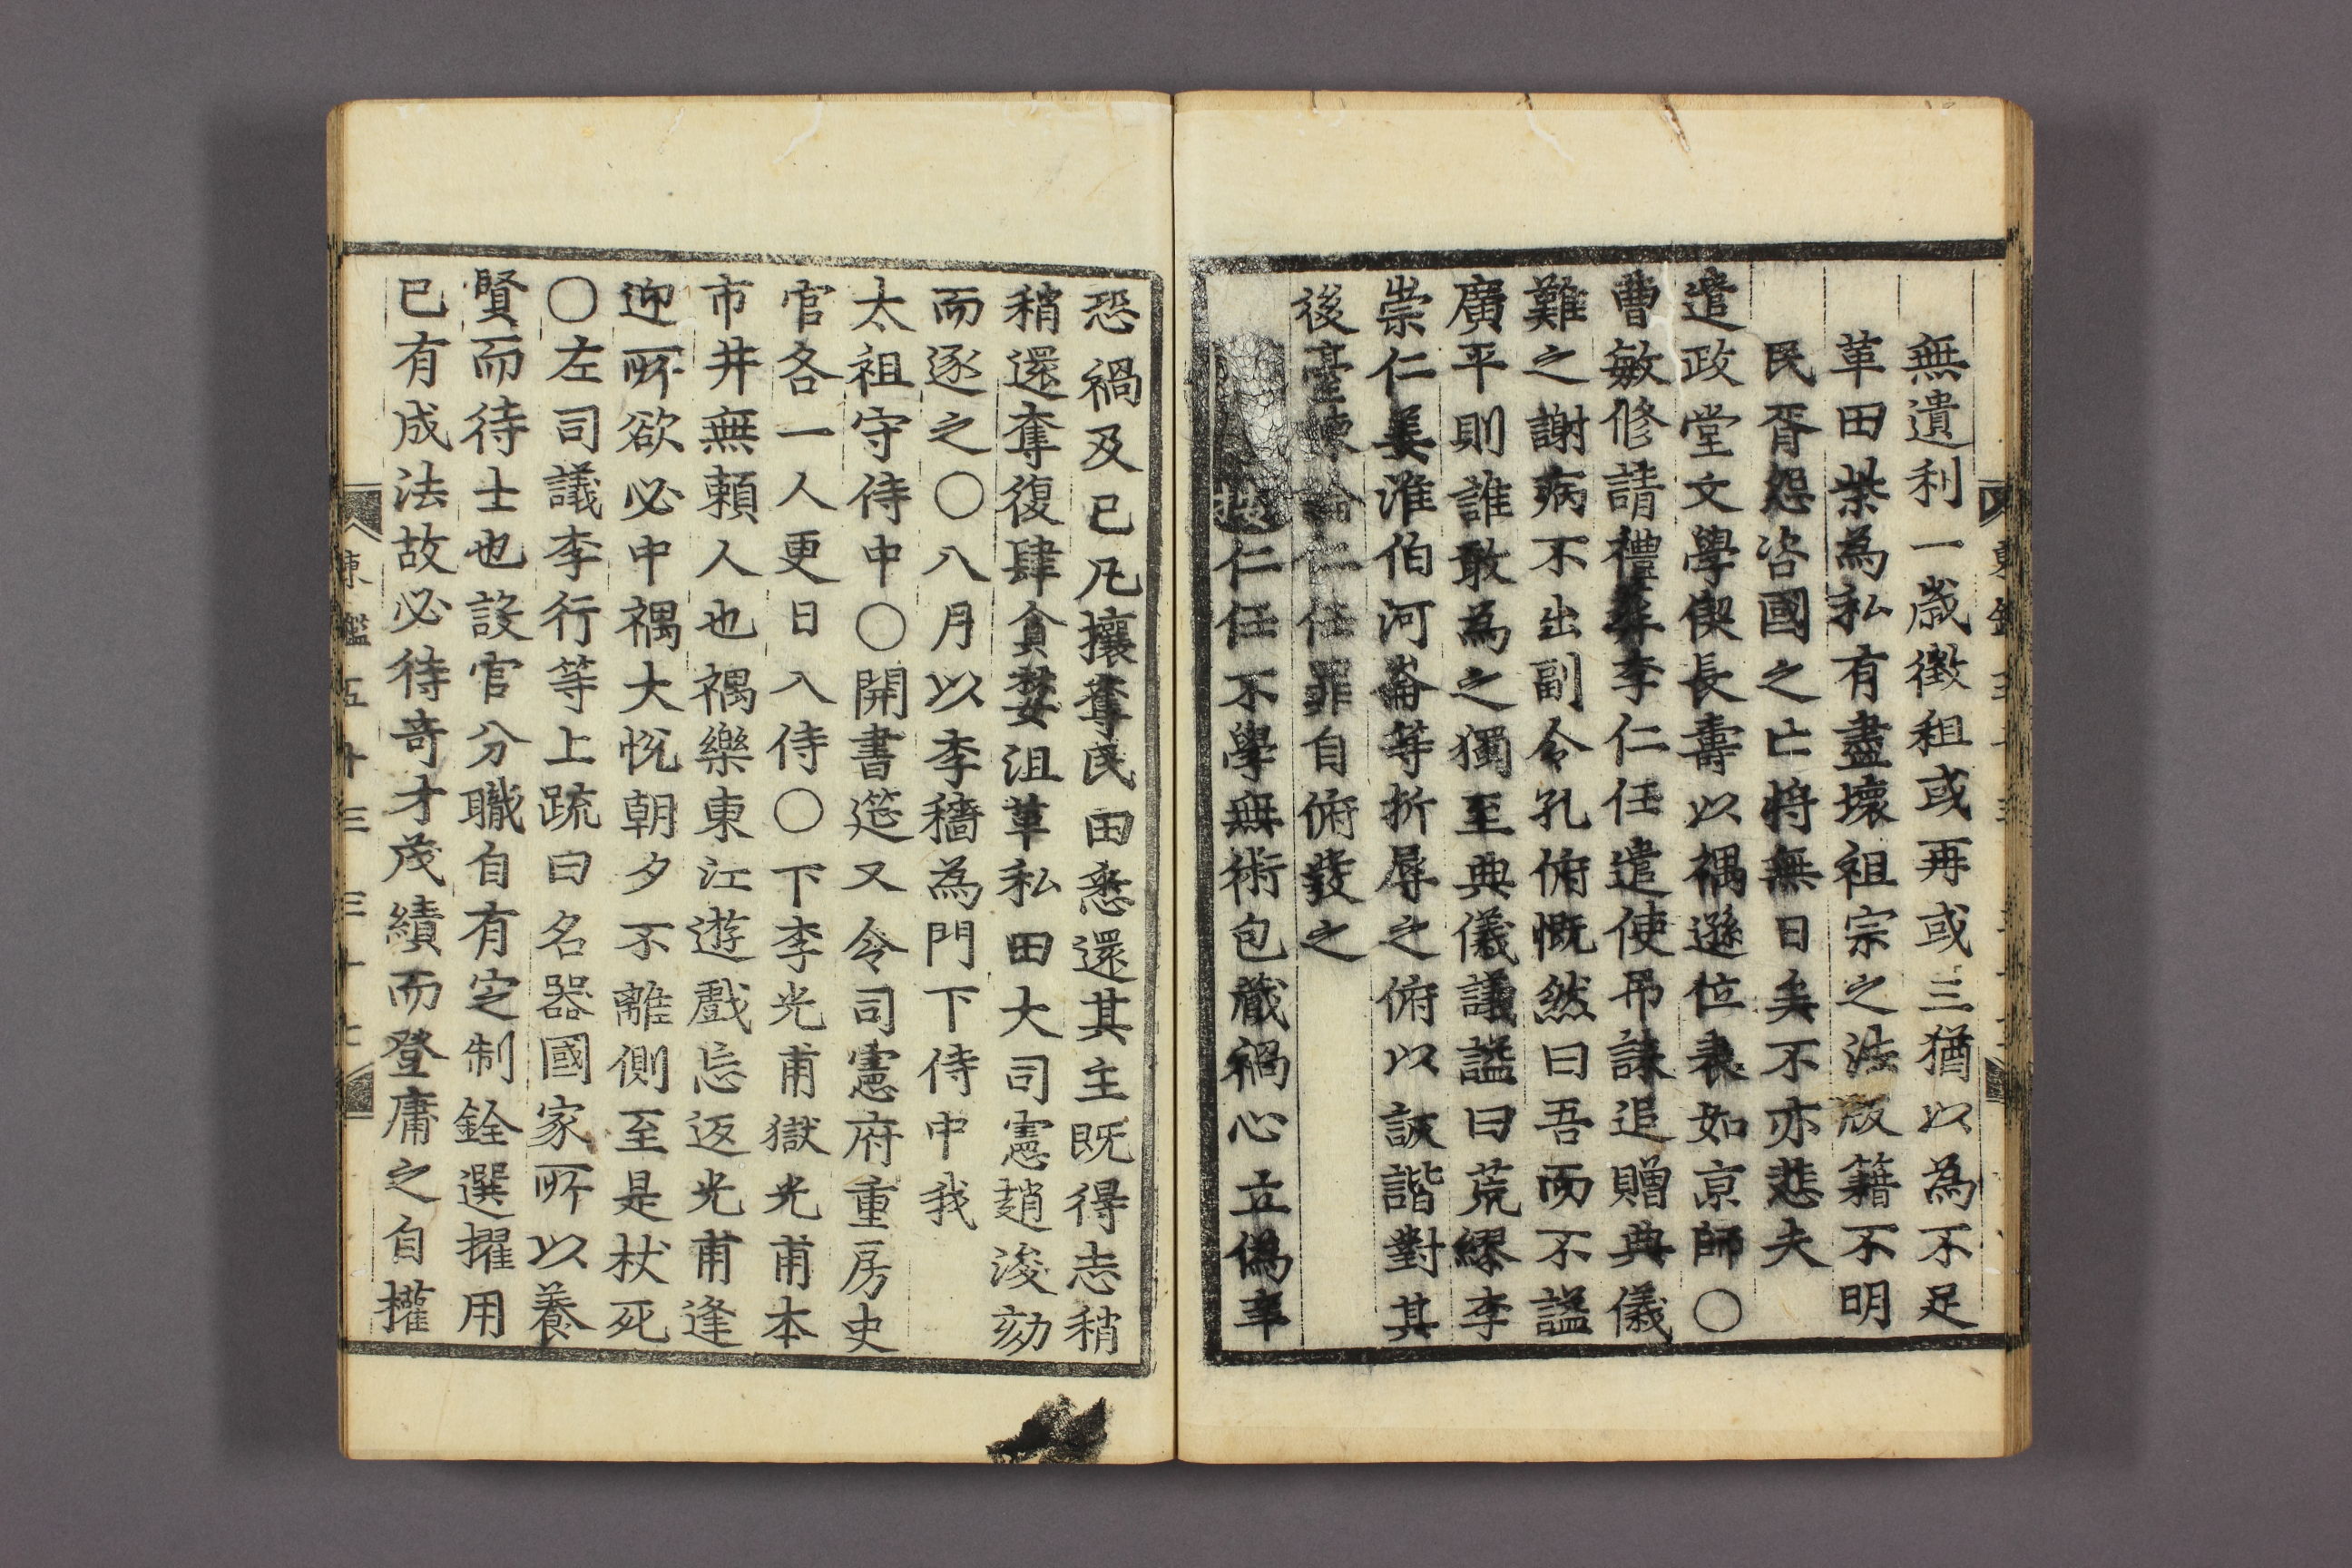 無遺利一歲徵租或再或三猶以為不足
革田柴為私有盡壞祖宗之法版籍不明
民胥怨咨國之亡將無日矣不亦悲夫
遣政堂文學偰長壽以禑遜位表如京師○
曹敏修請禮葬李仁任遣使吊誄追贈典儀
難之謝病不出副令孔俯慨然曰吾而不諡
廣平則誰敢為之獨至典儀議諡曰荒繆李
崇仁姜淮伯河崙等折辱之俯以詼諧對其
後臺諫論仁任罪自俯發之
仁任不學無術包藏禍心立偽辛
恐禍及已凡攘奪民田悉還其主既得志稍
稍還奪復肆貪婪沮革私田大司憲趙浚劾
而逐之○八月以李穡為門下侍中我
太祖守侍中○開書筵又令司憲府重房史
官各一人更日入侍○下李光甫獄光甫本
市井無賴人也禑樂東江遊戲忘返光甫逢
迎所欲必中禑大悅朝夕不離側至是杖死
○左司議李行等上疏曰名器國家所以養
賢而待士也設官分職自有定制銓選擢用
已有成法故必待奇才茂績而登庸之自權
東鑑五十三 三十七